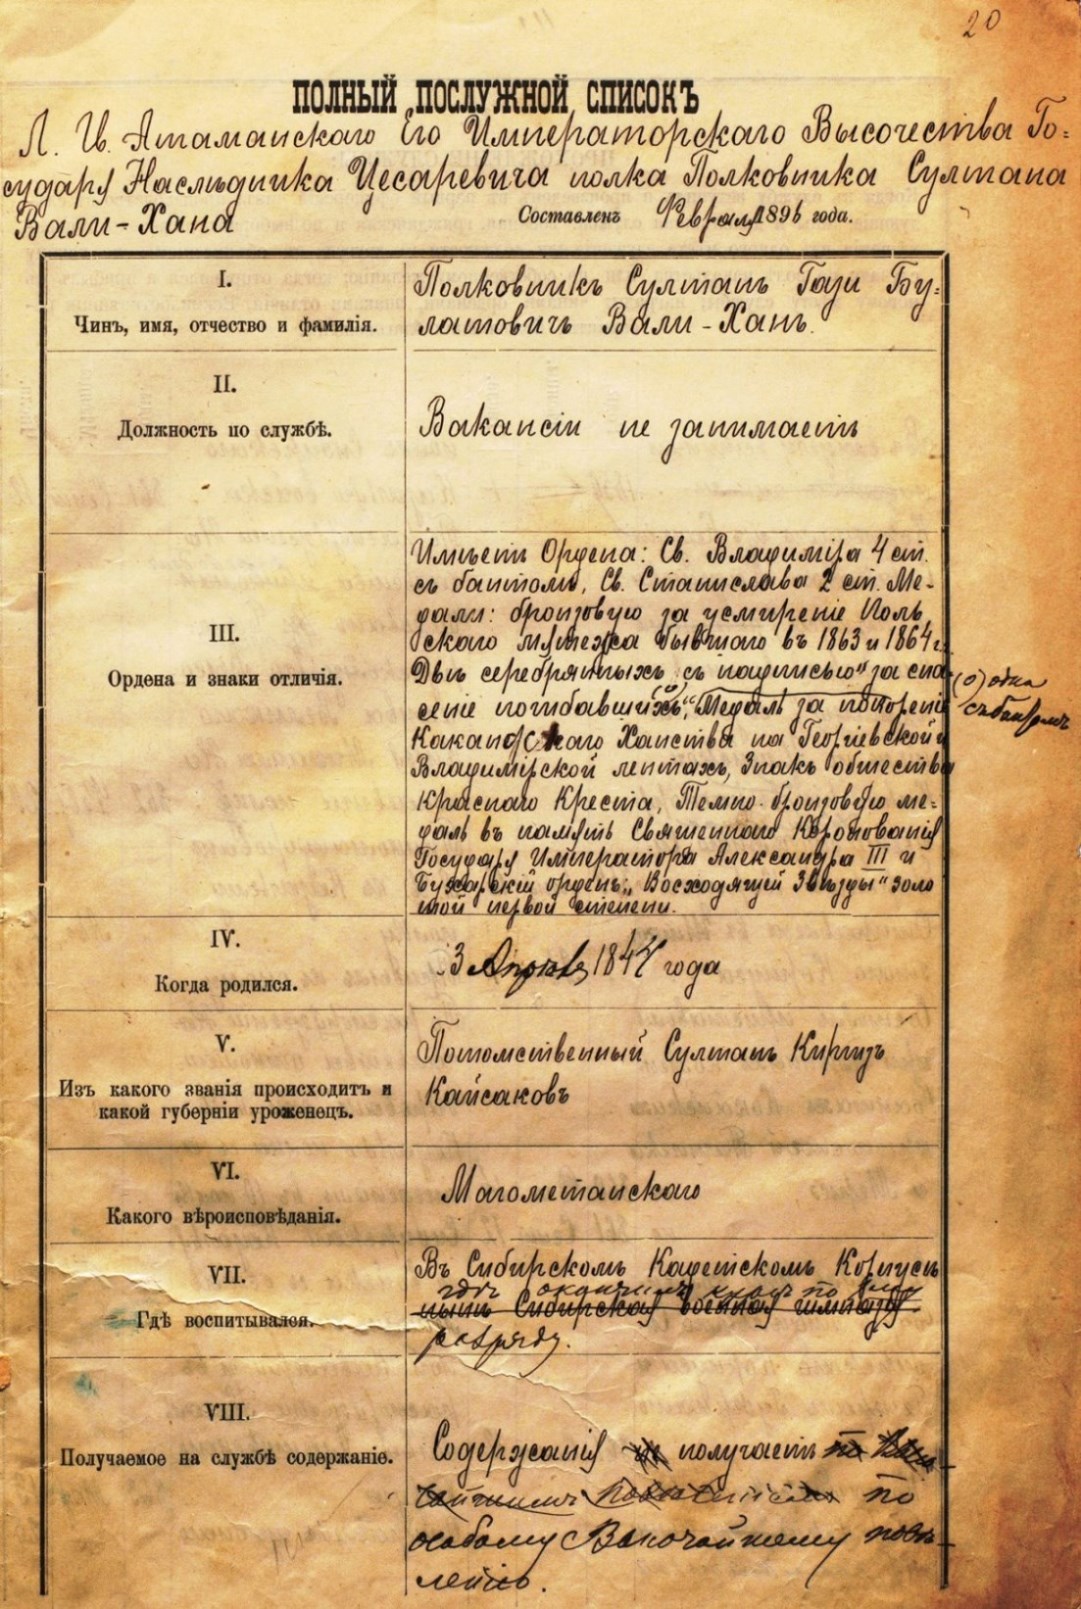 20
ПОЛНЫЙ ПОСЛУЖНОЙ СПИСОКЪ
Л. Гв. Атаманскаго Его Императорскаго Высочества Го=
сударя Наслѣдника Цесаревича полка Полковника Султана
Вали-Хана
Составленъ Февраля 1896 года.
I.
Чинъ, имя, отчество и фамилія.
Полковникъ Султанъ Гази Бу=
латовичъ Вали-Ханъ.
II.
Должность по службѣ.
Вакансіи не занимаетъ
III.
Ордена и знаки отличія.
Имѣетъ Ордена: Св. Владиміра 4 ст.
съ бантомъ, Св. Станислава 2 ст. Ме-
дали: бронзовую за усмиреніе Поль
скаго мятежа бывшаго въ 1863 и 1864 г.
Двѣ серебрянныхъ съ надписью "за спа
сеніе погибавшихъ", Медаль за покореніе
(о) одна
съ бантомъ
Какандскаго Ханства на Георгіевской и
Владимірской лентахъ, Знакъ общества
Краснаго Креста, Темно-бронзовую ме=
даль въ память Священнаго Коронованія
Государя Императора Александра III и
Бухарскій орденъ „Восходящей Звѣзды" золо
той первой степени.
IV.
Когда родился.
3 Апрѣля 184 года
V.
Изъ какого званія происходитъ и
какой губерніи уроженецъ.
Потомственный Султанъ Киргизъ
Кайсаковъ
VI.
Какого вѣроисповѣданія.
Магометанскаго
VII.
Гдѣ воспитывался.
Въ Сибирскомъ Кадетскомъ Корпусѣ
гдѣ окончилъ курсъ по
нынѣ Сибирская военная гимназія
разряду.
VIII.
Получаемое на службѣ содержаніе.
Содержанія не получаетъ по
по
особому Высочайшему пове-
лѣнію.